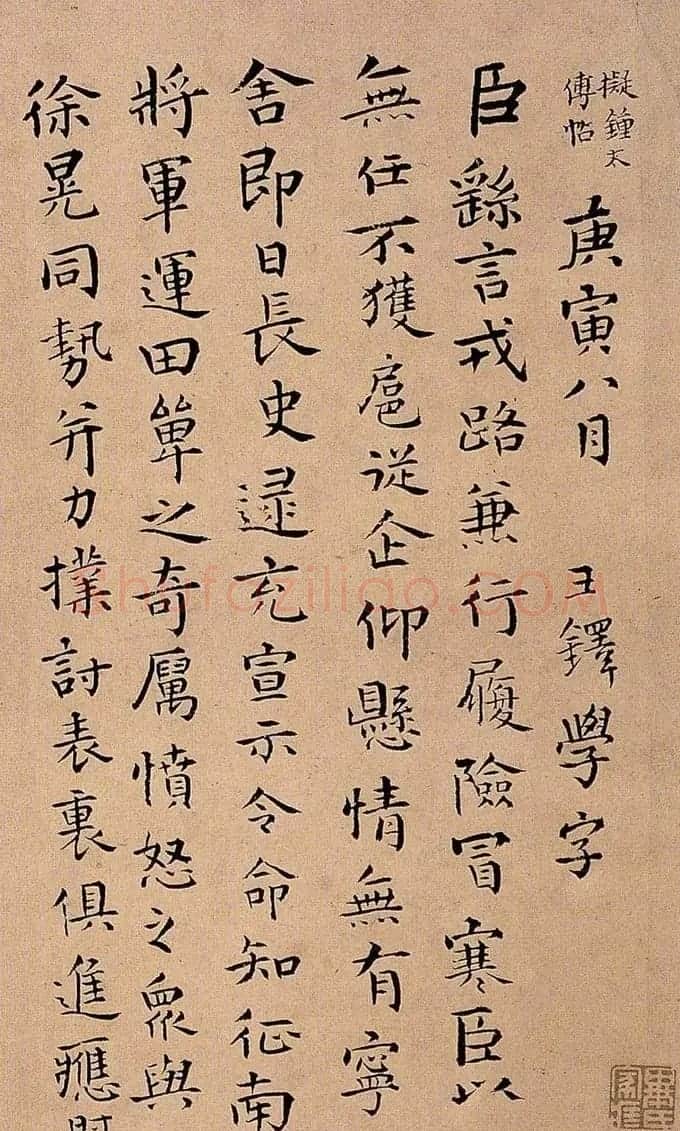 擬鍾太
傅帖
庚寅八月 王鐸學字
臣繇言戎路兼行履險冒寒臣以
無任不獲扈從企仰懸情無有寧
舍即日長史逯充宣示令命知征南
將軍運田單之奇厲憤怒之眾與
徐晃同勢并力撲討表裏俱進應時
shufaziliao.com